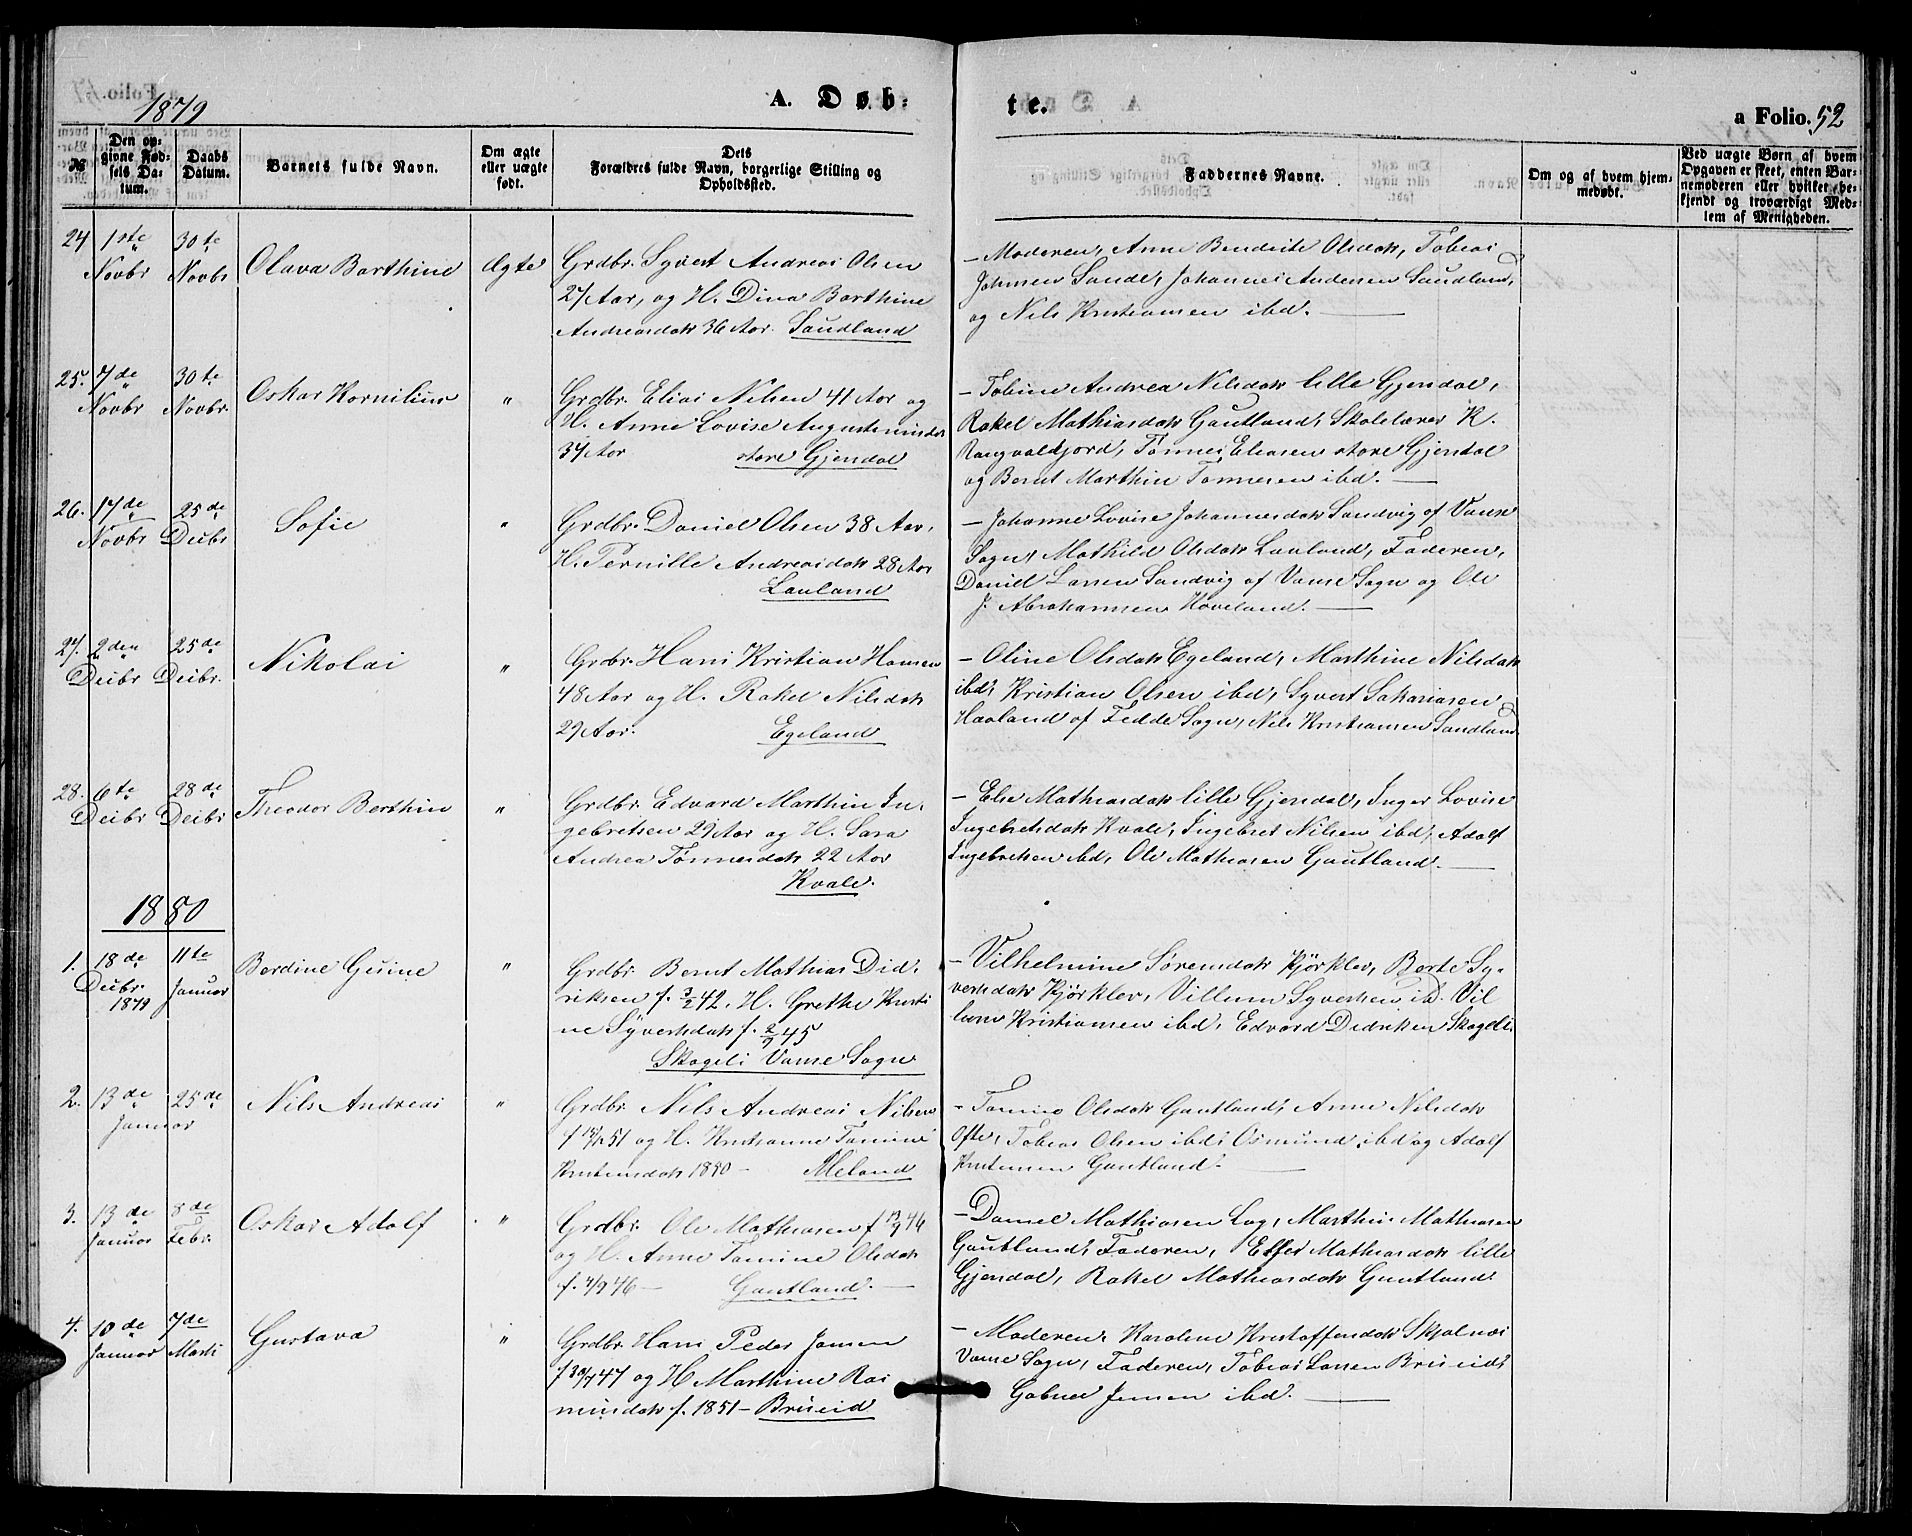 1879
A. Døb-
te.
a Folio. 52
№
Den op-
givne Fød-
sels Da-
tum.
Daabs
Datum.
Barnets fulde Navn.
Om ægte
eller uægte
født.
Dets
Forældres fulde Navn, borgerlige Stilling og
Opholdssted.
Faddernes Navne.
Om og af hvem hjem-
medøbt.
Ved uægte Børn af hvem
Opgaven er skeet, enten Bar-
nemoderen eller hvilket be-
kjendt og troværdigt Med-
lem af Menigheden.
24 1ste Novbr 30te Novbr Olava Barthine Ægte
Grdbr. Syvert Andreas Olsen
27 Aar, og H. Dina Barthine
Andreasdatr 36 Aar. Saudland
- Moderen, Anne Bendicte Olsdatr, Tobias
Johnsen Sande, Johannes Andersen Saudland,
og Nils Kristiansen ibd.
25. 7de Novbr 30te Novbr. Oskar Kornilius "
Grdbr. Elias Nilsen 41 Aar og
H. Anne Lovise Augustinusdr
34 Aar store Gjendal
- Tobine Andrea Nilsdatr lille Gjendal,
Rakel Mathiasdatr Gautland, Skolelærer K.
Rangvaldjord, Tønnes Eliasen store Gjendal
og Bernt Marthin Tønnesen ibd.
26. 17de Novbr 25de Decbr Sofie "
Grdbr. Daniel Olsen 38 Aar,
H. Pernille Andreasdatr 28 Aar
Lauland
- Johanne Lovise Johannesdatr Sandvig af Vanse
Sogn, Mathild Olsdatr Lauland, Faderen,
Daniel Larsen Sandvig af Vanse Sogn og Ole
J. Abrahamsen Hoveland.
27. 2den Decbr 25de Decbr. Nikolai "
Grdbr. Hans Kristian Hansen
48 Aar og H. Rakel Nilsdatr
29 Aar. Egeland
- Oline Olsdatr Egeland, Marthine Nilsdatr
ibd, Kristian Olsen ibd, Syvert Sakariasen
Haaland af Fedde Sogn, Nils Kristiansen Saudland
28. 6te Decbr 28de Decbr Theodor Berthin "
Grdbr. Edvard Marthin In-
gebretsen 29 Aar og H. Sara
Andrea Tønnesdatr 22 Aar
Kvale.
- Else Mathiasdatr lille Gjendal, Inger Lovise
Ingebretsdatr Kvale, Ingebret Nilsen ibd, Adolf
Ingebretsen ibd, Ole Mathiasen Gautland.
1880
1. 18de Decbr. 1879 11te Januar Berdine Gusine "
Grdbr. Bernt Mathias Did-
riksen f. 3/2 42. H. Grethe Kristi
ne Syvertsdatr f. 2/9 45
Skageli Vanse Sogn
- Vilhelmine Sørensdatr Kjørklev, Berte Sy-
vertsdatr Kjørklev, Villum Syvertsen ibd. Vil
lum Kristiansen ibd, Edvard Didriksen Skageli.
2. 13de 25de Januar Nils Andreas "
Grdbr. Nils Andreas Nilsen
51 og H. Kristianne Tomine
Kristensdatr Meland
- Tomine Olsdatr Gautland, Anne Nilsdatr
Ofte, Tobias Olsen ibd, Osmund ibd og Adolf
Kristensen Gautland.
3. 13de Januar 8de Febr. Oskar Adolf "
Grdbr. Ole Mathiasen f 13/9 46
og H. Anne Tomine Olsdatr
46 - Gautland.
- Daniel Mathiasen Log, Marthin Mathiasen
Gautland, Faderen, Else Mathiasdatr lille
Gjendal, Rakel Mathiasdatr Gautland.
4. 10de Januar 7de Marts Gustava "
Grdbr. Hans Peder Jansen
f 30/7 47 og H Marthine Ras
musdatr f. 1851 - Briseid
- Moderen, Karoline Kristoffersdatr Skjolnes
Vanse Sogn, Faderen, Tobias Larsen Briseid,
Gabriel Jensen ibd.